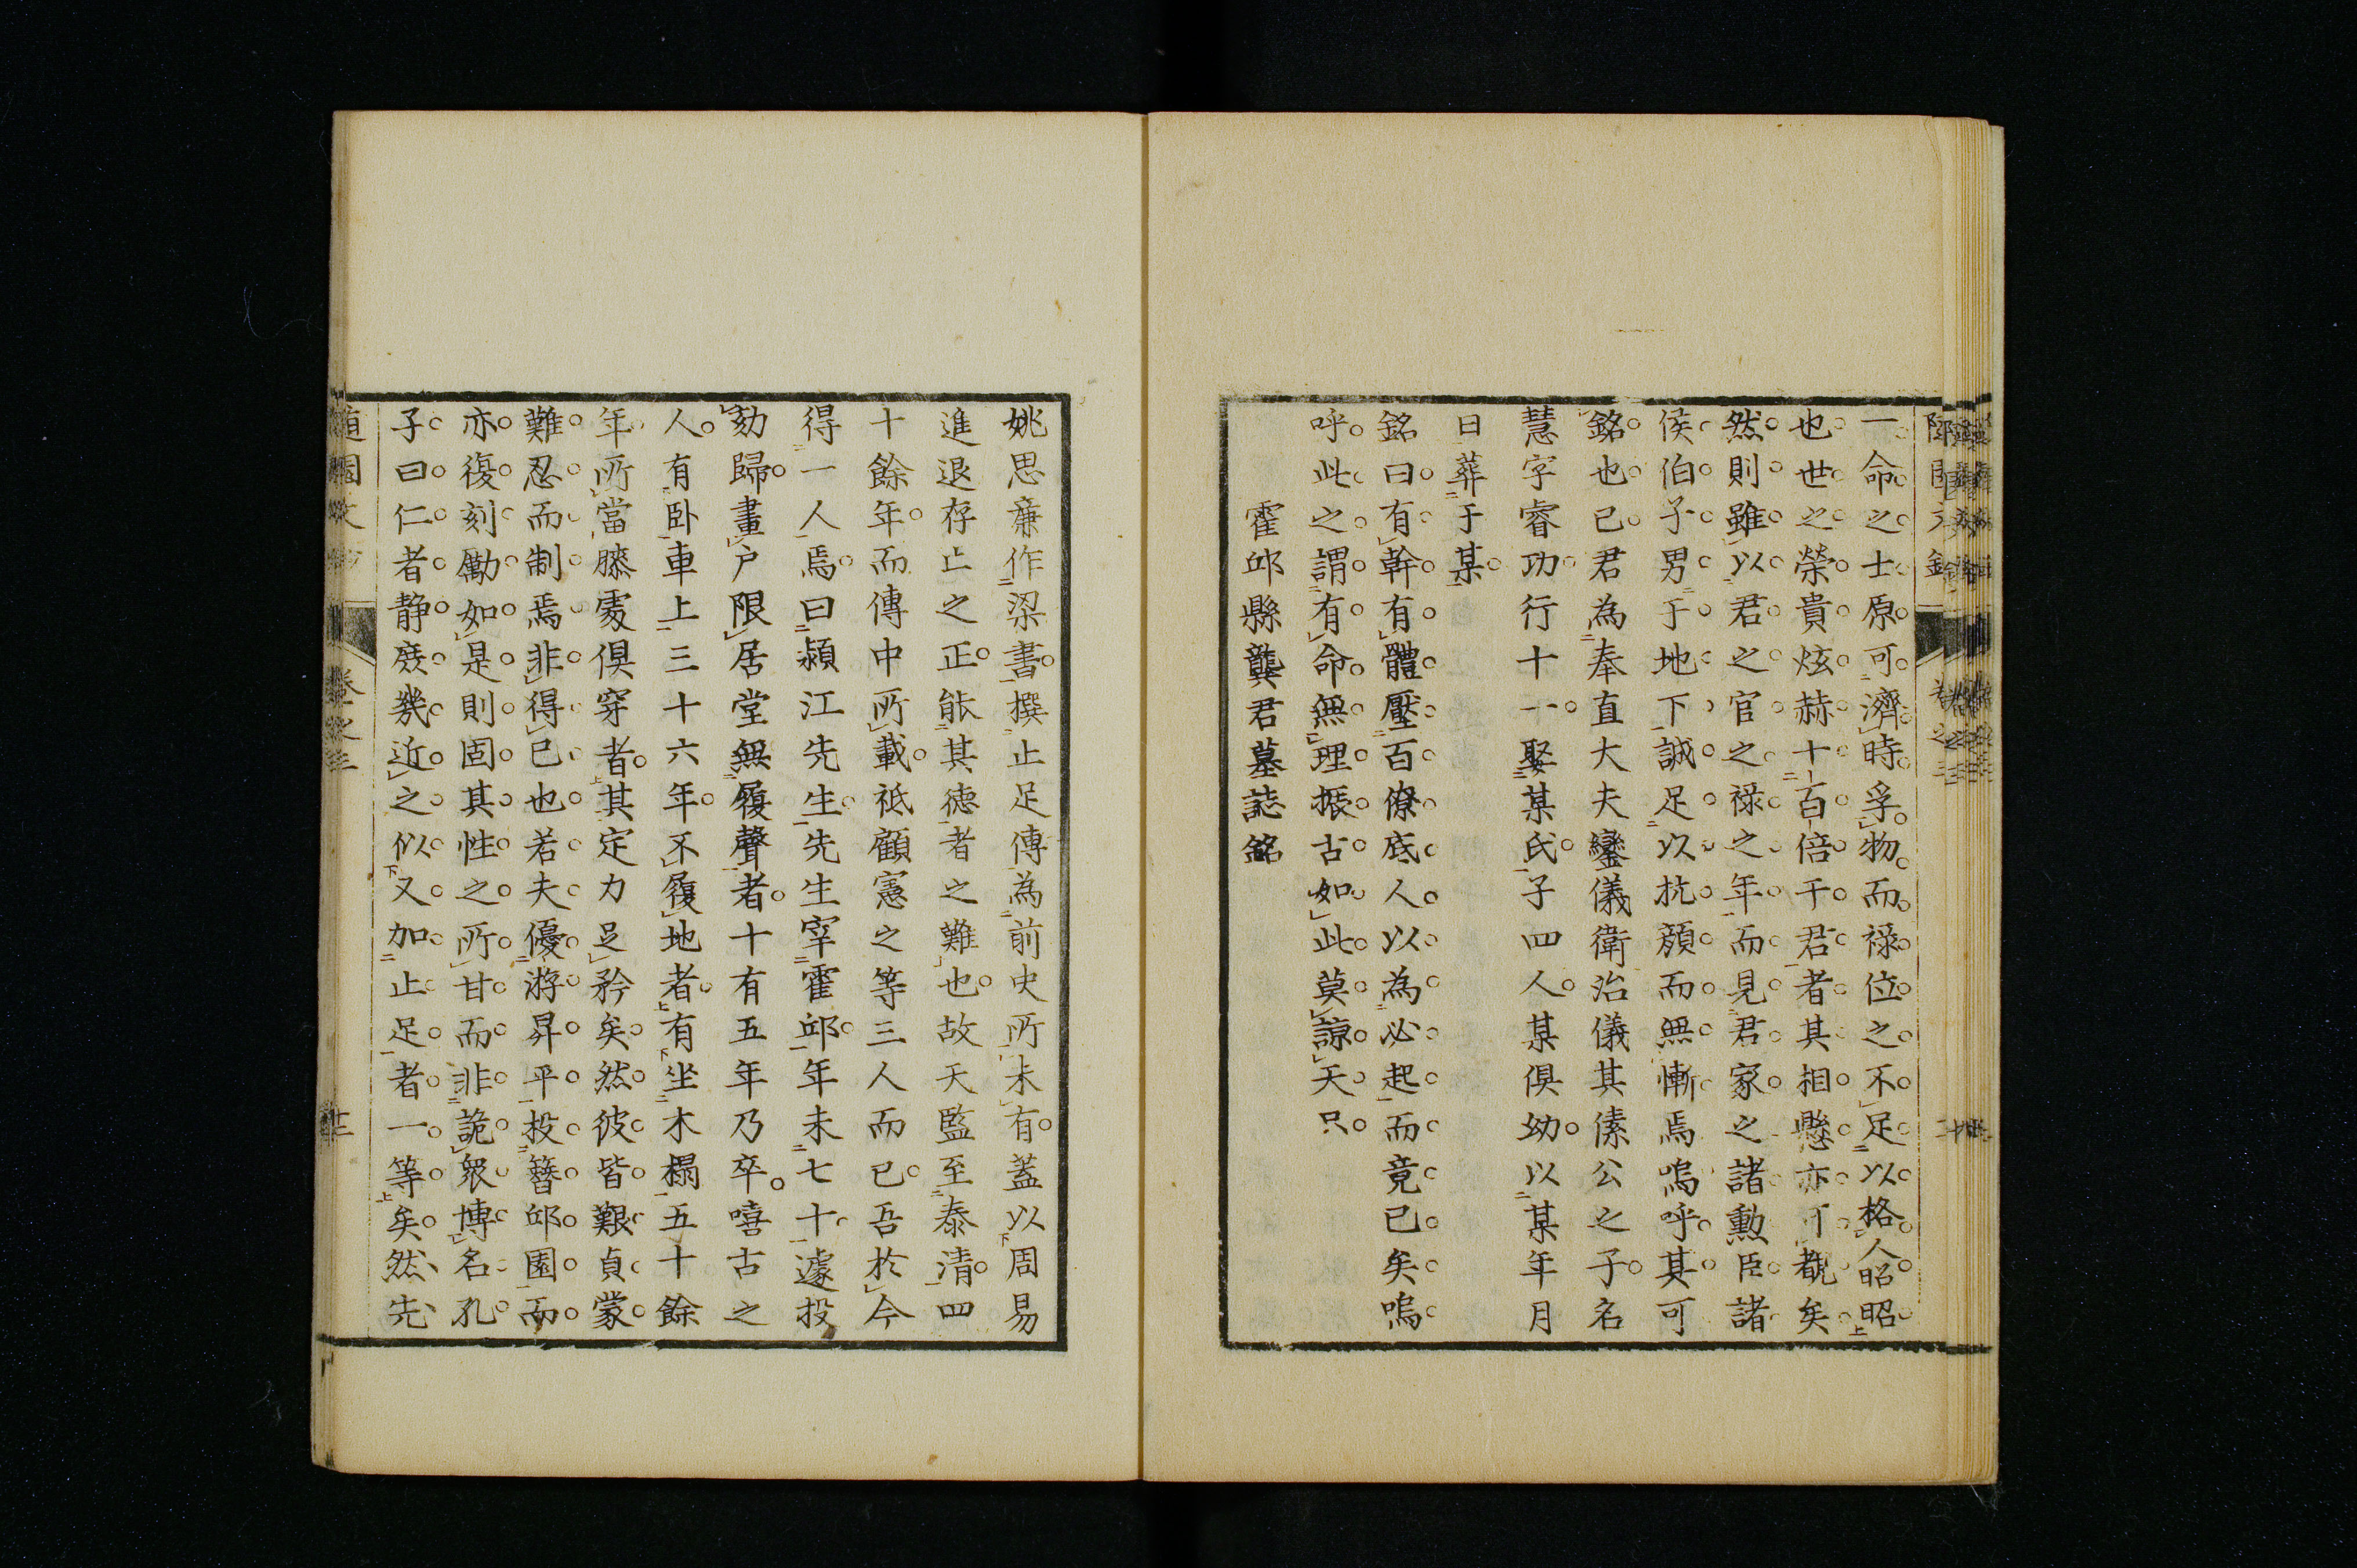 一命之士原可濟時孚物而祿位之不足以格人昭昭
也世之榮貴炫赫十百倍于君者其相懸亦可覩矣
然則雖以君之官之祿之年而見君家之諸勲臣諸
侯伯子男于地下誠足以抗顏而無慚焉嗚呼其可
銘也已君為奉直大夫鑾儀衛治儀其傃公之子名
慧字睿功行十一娶某氏子四人某俱幼以某年月
日葬于某
銘曰有幹有體壓百僚底人以為必起而竟已矣嗚
呼此之謂有命無理振古如此莫諒天只
霍邱縣龔君墓誌銘
姚思亷作梁書撰止足傳為前史所未有蓋以周易
進退存亡之正能其德者之難也故天監至泰清四
十餘年而傳中所載祗顧憲之等三人而已吾於今
得一人焉曰潁江先生先生宰霍邱年未七十遽投
劾歸畫户限居堂無履聲者十有五年乃卒嘻古之
人有卧車上三十六年不履地者有坐木榻五十餘
年所當膝處俱穿者其定力足矜矣然彼皆艱貞蒙
難忍而制焉非得已也若夫優游昇平投簪邱園而
亦復刻勵如是則固其性之所甘而非詭衆博名孔
子曰仁者静庶幾近之似又加止足者一等矣然先
隨園文鈔 卷之三 十三